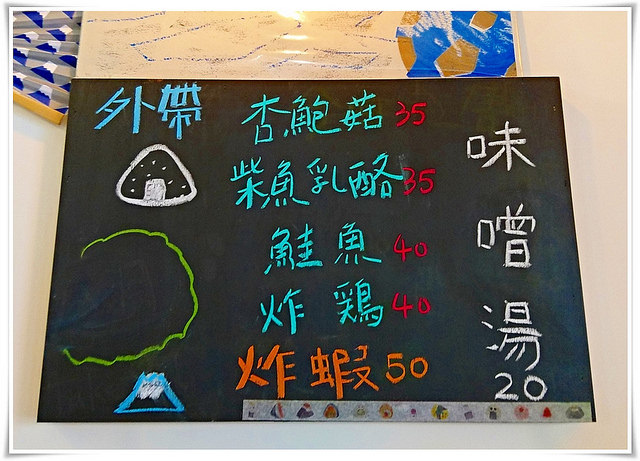 外帶
杏鮑菇 35
柴魚乳酪 35
鮭魚 40
炸鶏 40
炸蝦 50
味噌湯
20